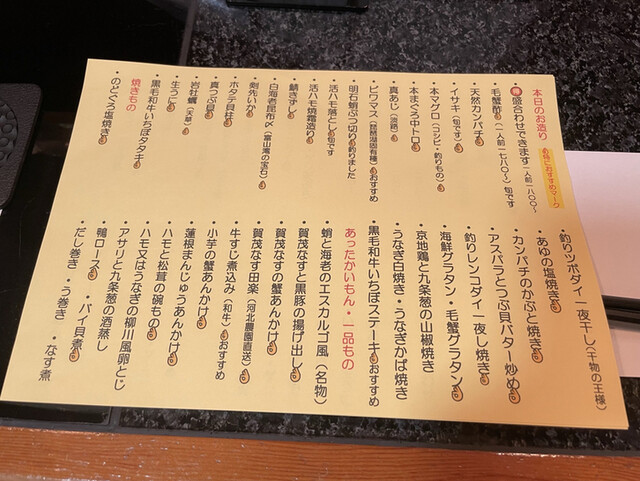 本日のお造り
特におすすめマーク
盛合わせできます一人前一八〇〇〜
・毛蟹酢(一人前一七八〇〜)旬です
・天然カンパチ
・イサキ(旬です)
・本マグロ(コシビ・釣りもの)
・本まぐろ中トロ
・真あじ(淡路)
・ビワマス(琵琶湖固有種)おすすめ
・明石蛸ぶつ切り釣りました
・活ハモ落とし旬です
・活ハモ焼霜造り
・鯖きずし
・白海老昆布〆(富山湾の宝石)
・剣先いか
・ホタテ貝柱
・真つぶ貝
・岩牡蠣(天草)
・生うに
・黒毛和牛いちぼタタキ
焼きもの
・のどぐろ塩焼き
・釣りツボダイ一夜干し(干物の王様)
・あゆの塩焼き
・カンパチのかぶと焼き
・アスパラとつぶ貝バター炒め
・釣りレンコダイ一夜し焼き
・海鮮グラタン・毛蟹グラタン
・京地鶏と九条葱の山椒焼き
・うなぎ白焼き・うなぎかば焼き
・黒毛和牛いちぼステーキおすすめ
あったかいもん・一品もの
・蛸と海老のエスカルゴ風(名物)
・賀茂なすと黒豚の揚げ出し
・賀茂なすの蟹あんかけ
・賀茂なす田楽(河北農園直送)
・牛すじ煮込み(和牛)おすすめ
・小芋の蟹あんかけ
・蓮根まんじゅうあんかけ
・ハモと松茸の碗もの
・ハモ又はうなぎの柳川風卵とじ
・アサリと九条葱の酒蒸し
・鴨ロース ・バイ貝煮
・だし巻き ・う巻き ・なす煮